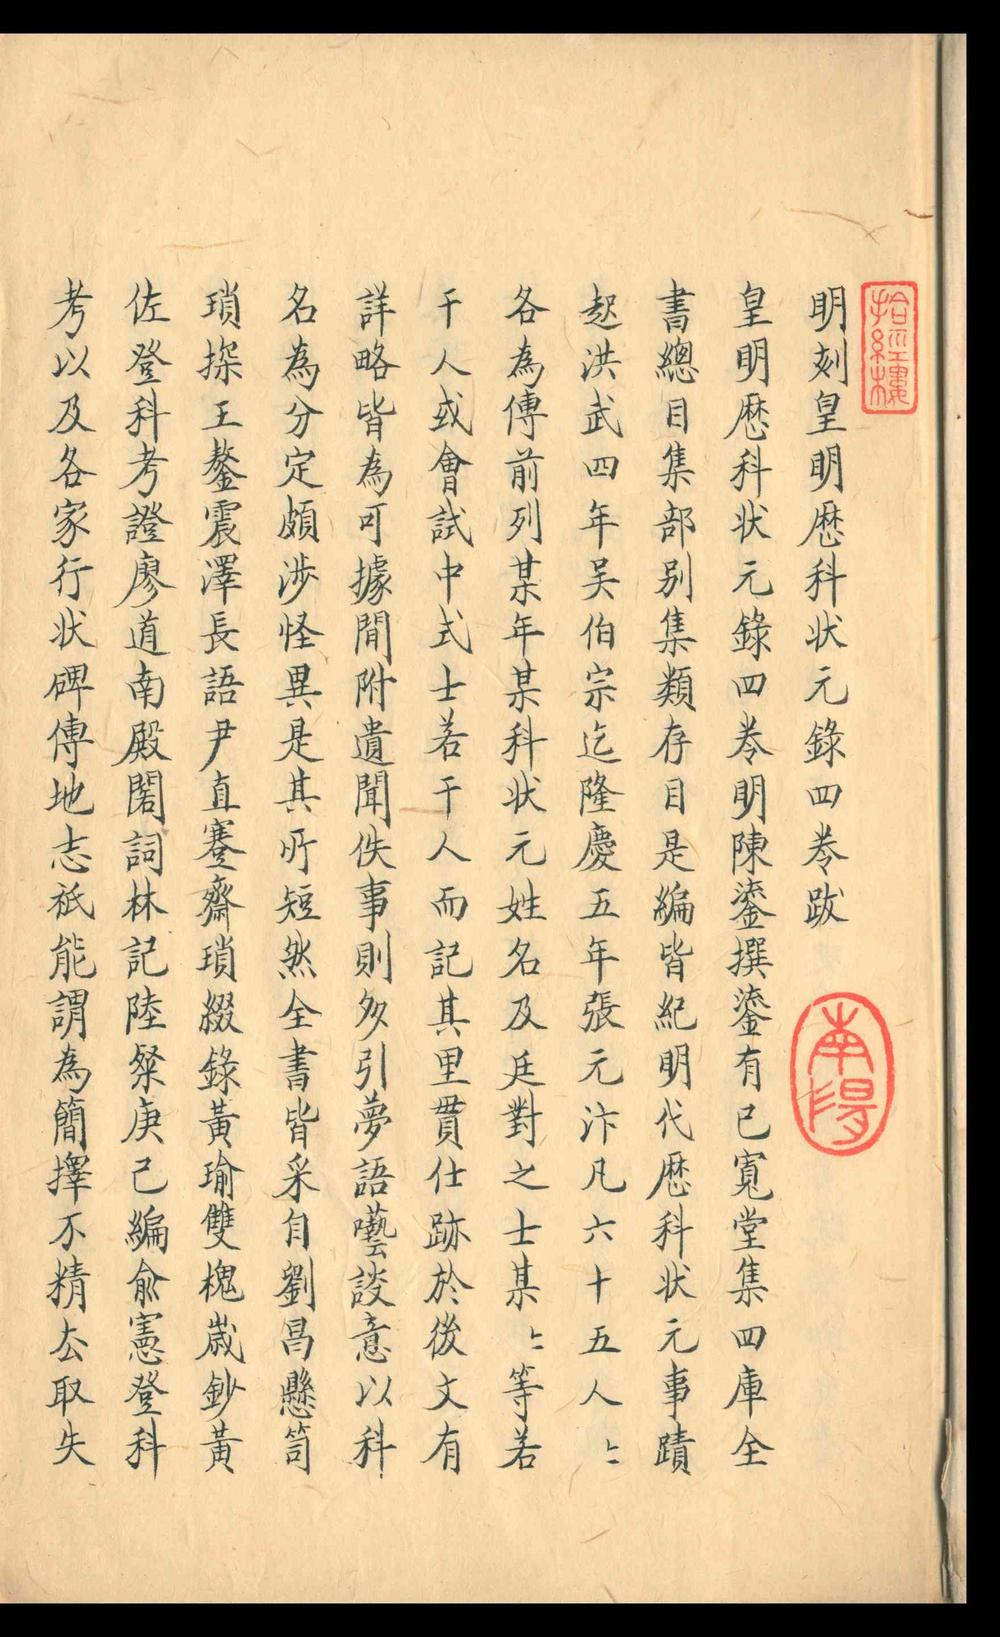 拾經樓
明刻皇明歷科狀元錄四卷跋
皇明歷科狀元錄四卷明陳鎏撰鎏有已寬堂集四庫全
書總目集部別集類存目是編皆紀明代歷科狀元事蹟
起洪武四年吴伯宗迄隆慶五年張元汴凡六十五人〻
各為傳前列某年某科狀元姓名及廷對之士某〻等若
干人或會試中式士若干人而記其里貫仕跡於後文有
詳略皆為可據間附遺聞佚事則多引夢語囈談意以科
名為分定頗涉怪異是其所短然全書皆采自劉昌懸笥
瑣探王鏊震澤長語尹直蹇齋瑣綴錄黃瑜雙槐歲鈔黃
佐登科考證廖道南殿閣詞林記陸粲庚己編俞憲登科
考以及各家行狀碑傳地志祇能謂為簡擇不精去取失